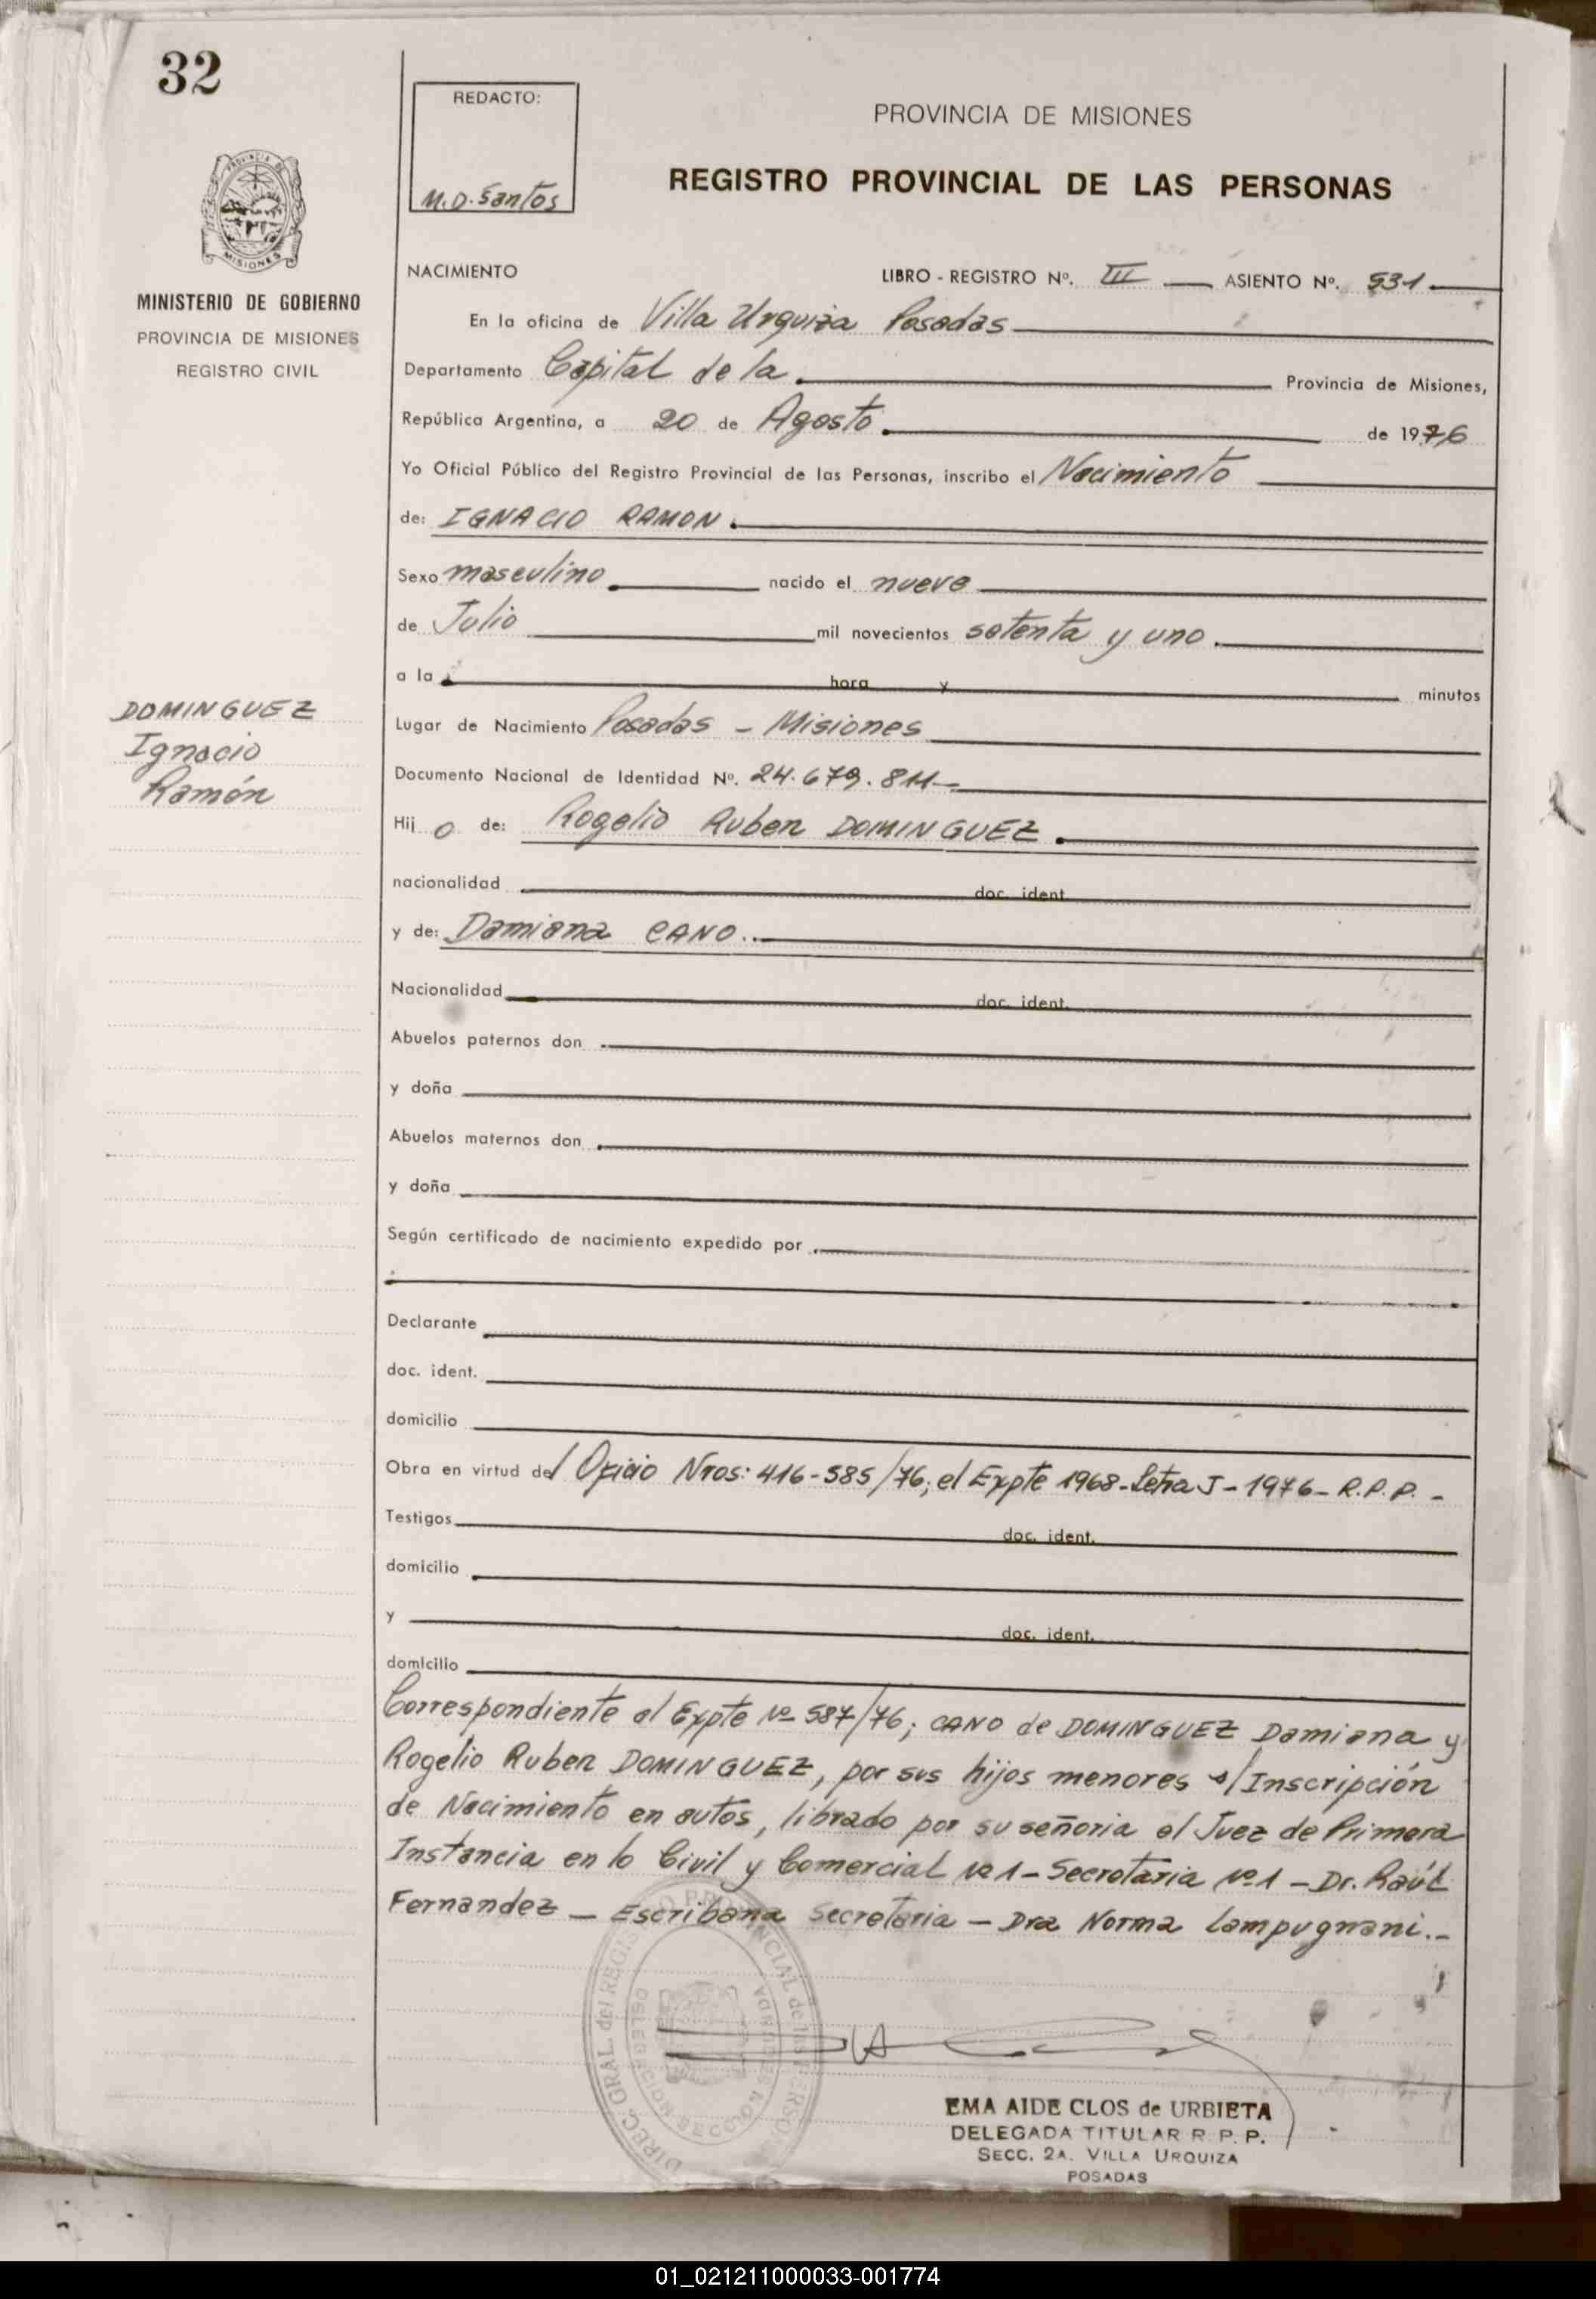 32
REDACTO:
M.D. Santos
PROVINCIA DE MISIONES
REGISTRO PROVINCIAL DE LAS PERSONAS
PROVINCIA DE
MISIONES
MINISTERIO DE GOBIERNO
PROVINCIA DE MISIONES
REGISTRO CIVIL
NACIMIENTO LIBRO - REGISTRO Nº. III ASIENTO Nº. 531
En la oficina de Villa Urquiza Posadas
Departamento Capital de la Provincia de Misiones,
República Argentina, a 20 de Agosto de 1976
Yo Oficial Público del Registro Provincial de las Personas, inscribo el Nacimiento
de: IGNACIO RAMON.
Sexo masculino nacido el nueve
de Julio mil novecientos setenta y uno.
a la hora y minutos
DOMINGUEZ
Ignacio
Ramón
Lugar de Nacimiento Posadas - Misiones
Documento Nacional de Identidad Nº. 24.679.811-
Hij o de: Rogelio Ruben DOMINGUEZ.
nacionalidad doc. ident.
y de: Damiana CANO.
Nacionalidad doc. ident.
Abuelos paternos don
y doña
Abuelos maternos don
y doña
Según certificado de nacimiento expedido por
Declarante
doc. ident.
domicilio
Obra en virtud del Oficio Nros: 416-585/76; el Expte 1968-Letra J-1976- R.P.P. -
Testigos doc. ident.
domicilio
y doc. ident.
domicilio
Correspondiente al Expte Nº 587/76; CANO de DOMINGUEZ Damiana y
Rogelio Ruben DOMINGUEZ, por sus hijos menores s/Inscripción
de Nacimiento en autos, librado por su señoria el Juez de Primera
Instancia en lo Civil y Comercial Nº1-Secretaria Nº1 - Dr. Raúl
Fernandez - Escribana Secretaria - Dra Norma Lampugnani.-
DIREC. GRAL. del REGISTRO PROVINCIAL de las PERSONAS
DELEGACION SECCION
EMA AIDE CLOS de URBIETA
DELEGADA TITULAR R. P. P.
SECC. 2A. VILLA URQUIZA
POSADAS
01_021211000033-001774